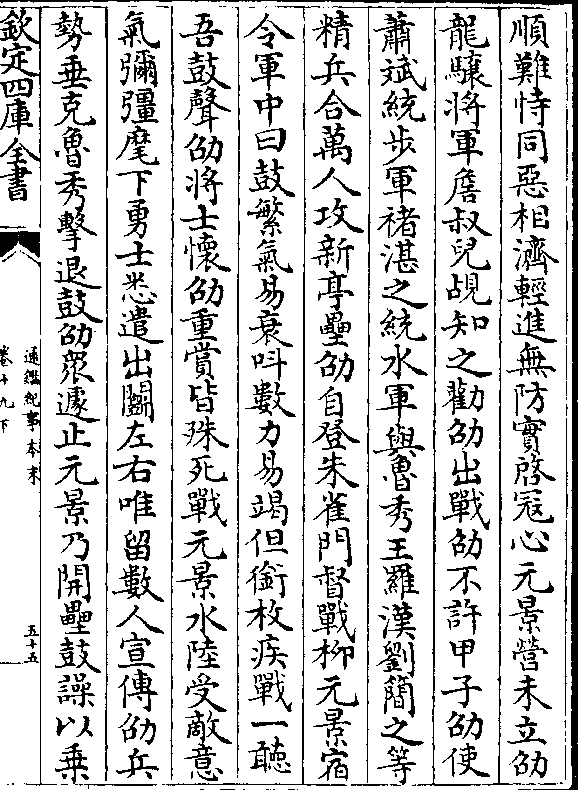 順難恃同惡相濟輕進無防實啓冦心元景營未立劭
龍驤將軍詹叔兒覘知之勸劭出戰劭不許甲子劭使
蕭斌統步軍禇湛之統水軍與魯秀王羅漢劉簡之等
精兵合萬人攻新亭壘劭自登朱雀門督戰柳元景宿
令軍中曰鼓繁氣易衰呌數力易竭但銜枚疾戰一聽
吾鼓聲劭將士懷劭重賞皆殊死戰元景水陸受敵意
氣彌彊麾下勇士悉遣出鬭左右唯留數人宣傳劭兵
勢垂克魯秀擊退鼓劭衆遽止元景乃開壘鼓譟以乗
欽定四庫全書
通鑑紀事本末
卷十九下
五十五